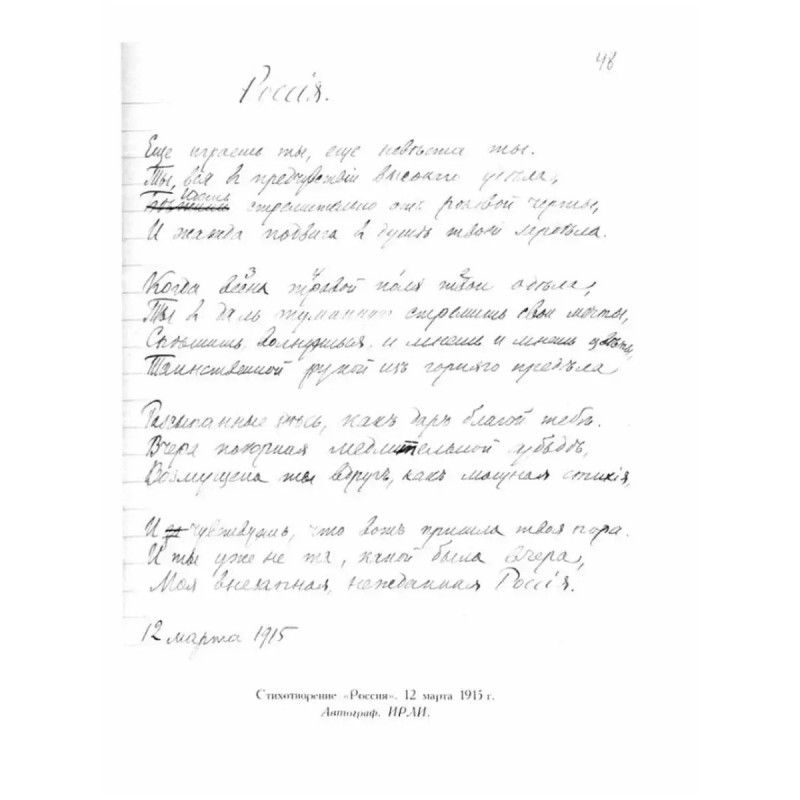 48
Россія.
Еще играешь ты, еще невѣста ты.
Ты, вся в предчувствіи высокаго удѣла,
Идешь стремительно отъ роковой черты,
И жажда подвига в душѣ твоей зардѣла.
Когда весна травой поля твои одѣла,
Ты в даль туманную стремишь свои мечты,
Спѣшишь, волнуешься, и мнешь и мнешь цвѣты,
Таинственной рукой изъ горняго предѣла
Разсыпанные здѣсь, какъ даръ благой тебѣ.
Вчера покорная медлительной судьбѣ,
Возмущена ты вдругъ, какъ мощная стихія,
И чувствуешь, что вотъ пришла твоя пора.
И ты уже не та, какой была вчера,
Моя внезапная, нежданная Россія.
12 марта 1915
Стихотворение «Россия». 12 марта 1915 г.
Автограф. ИРЛИ.